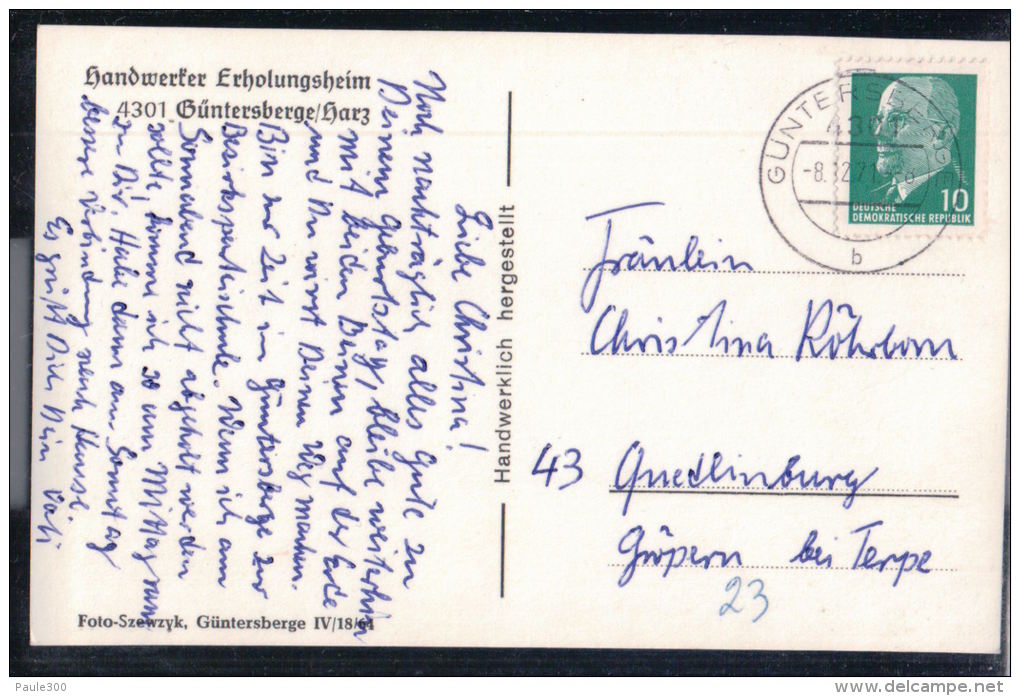 Handwerker Erholungsheim
4301 Güntersberge/Harz
Liebe Christina!
Noch nachträglich alles Gute zu
Deinem Geburtstag, bleibe weiterhin
mit beiden Beinen auf der Erde
und Du wirst Deinen Weg machen.
Bin zur Zeit in Güntersberge zur
Bezirksparteischule. Wenn ich am
Sonnabend nicht abgeholt werden
sollte, komme ich so um Mittag rum
zu Dir. Habe dann am Sonntag
bessere Verbindung nach Hause.
Es grüßt Dich Dein Vati
Foto-Szewzyk, Güntersberge IV/18/64
Handwerklich hergestellt
GÜNTERSBERGE
4301
-8.12.71
b
10
DEUTSCHE
DEMOKRATISCHE REPUBLIK
Fräulein
Christina Röhrborn
43 Quedlinburg
Gröpern bei Terpe
23
Paule300
www.delcampe.net